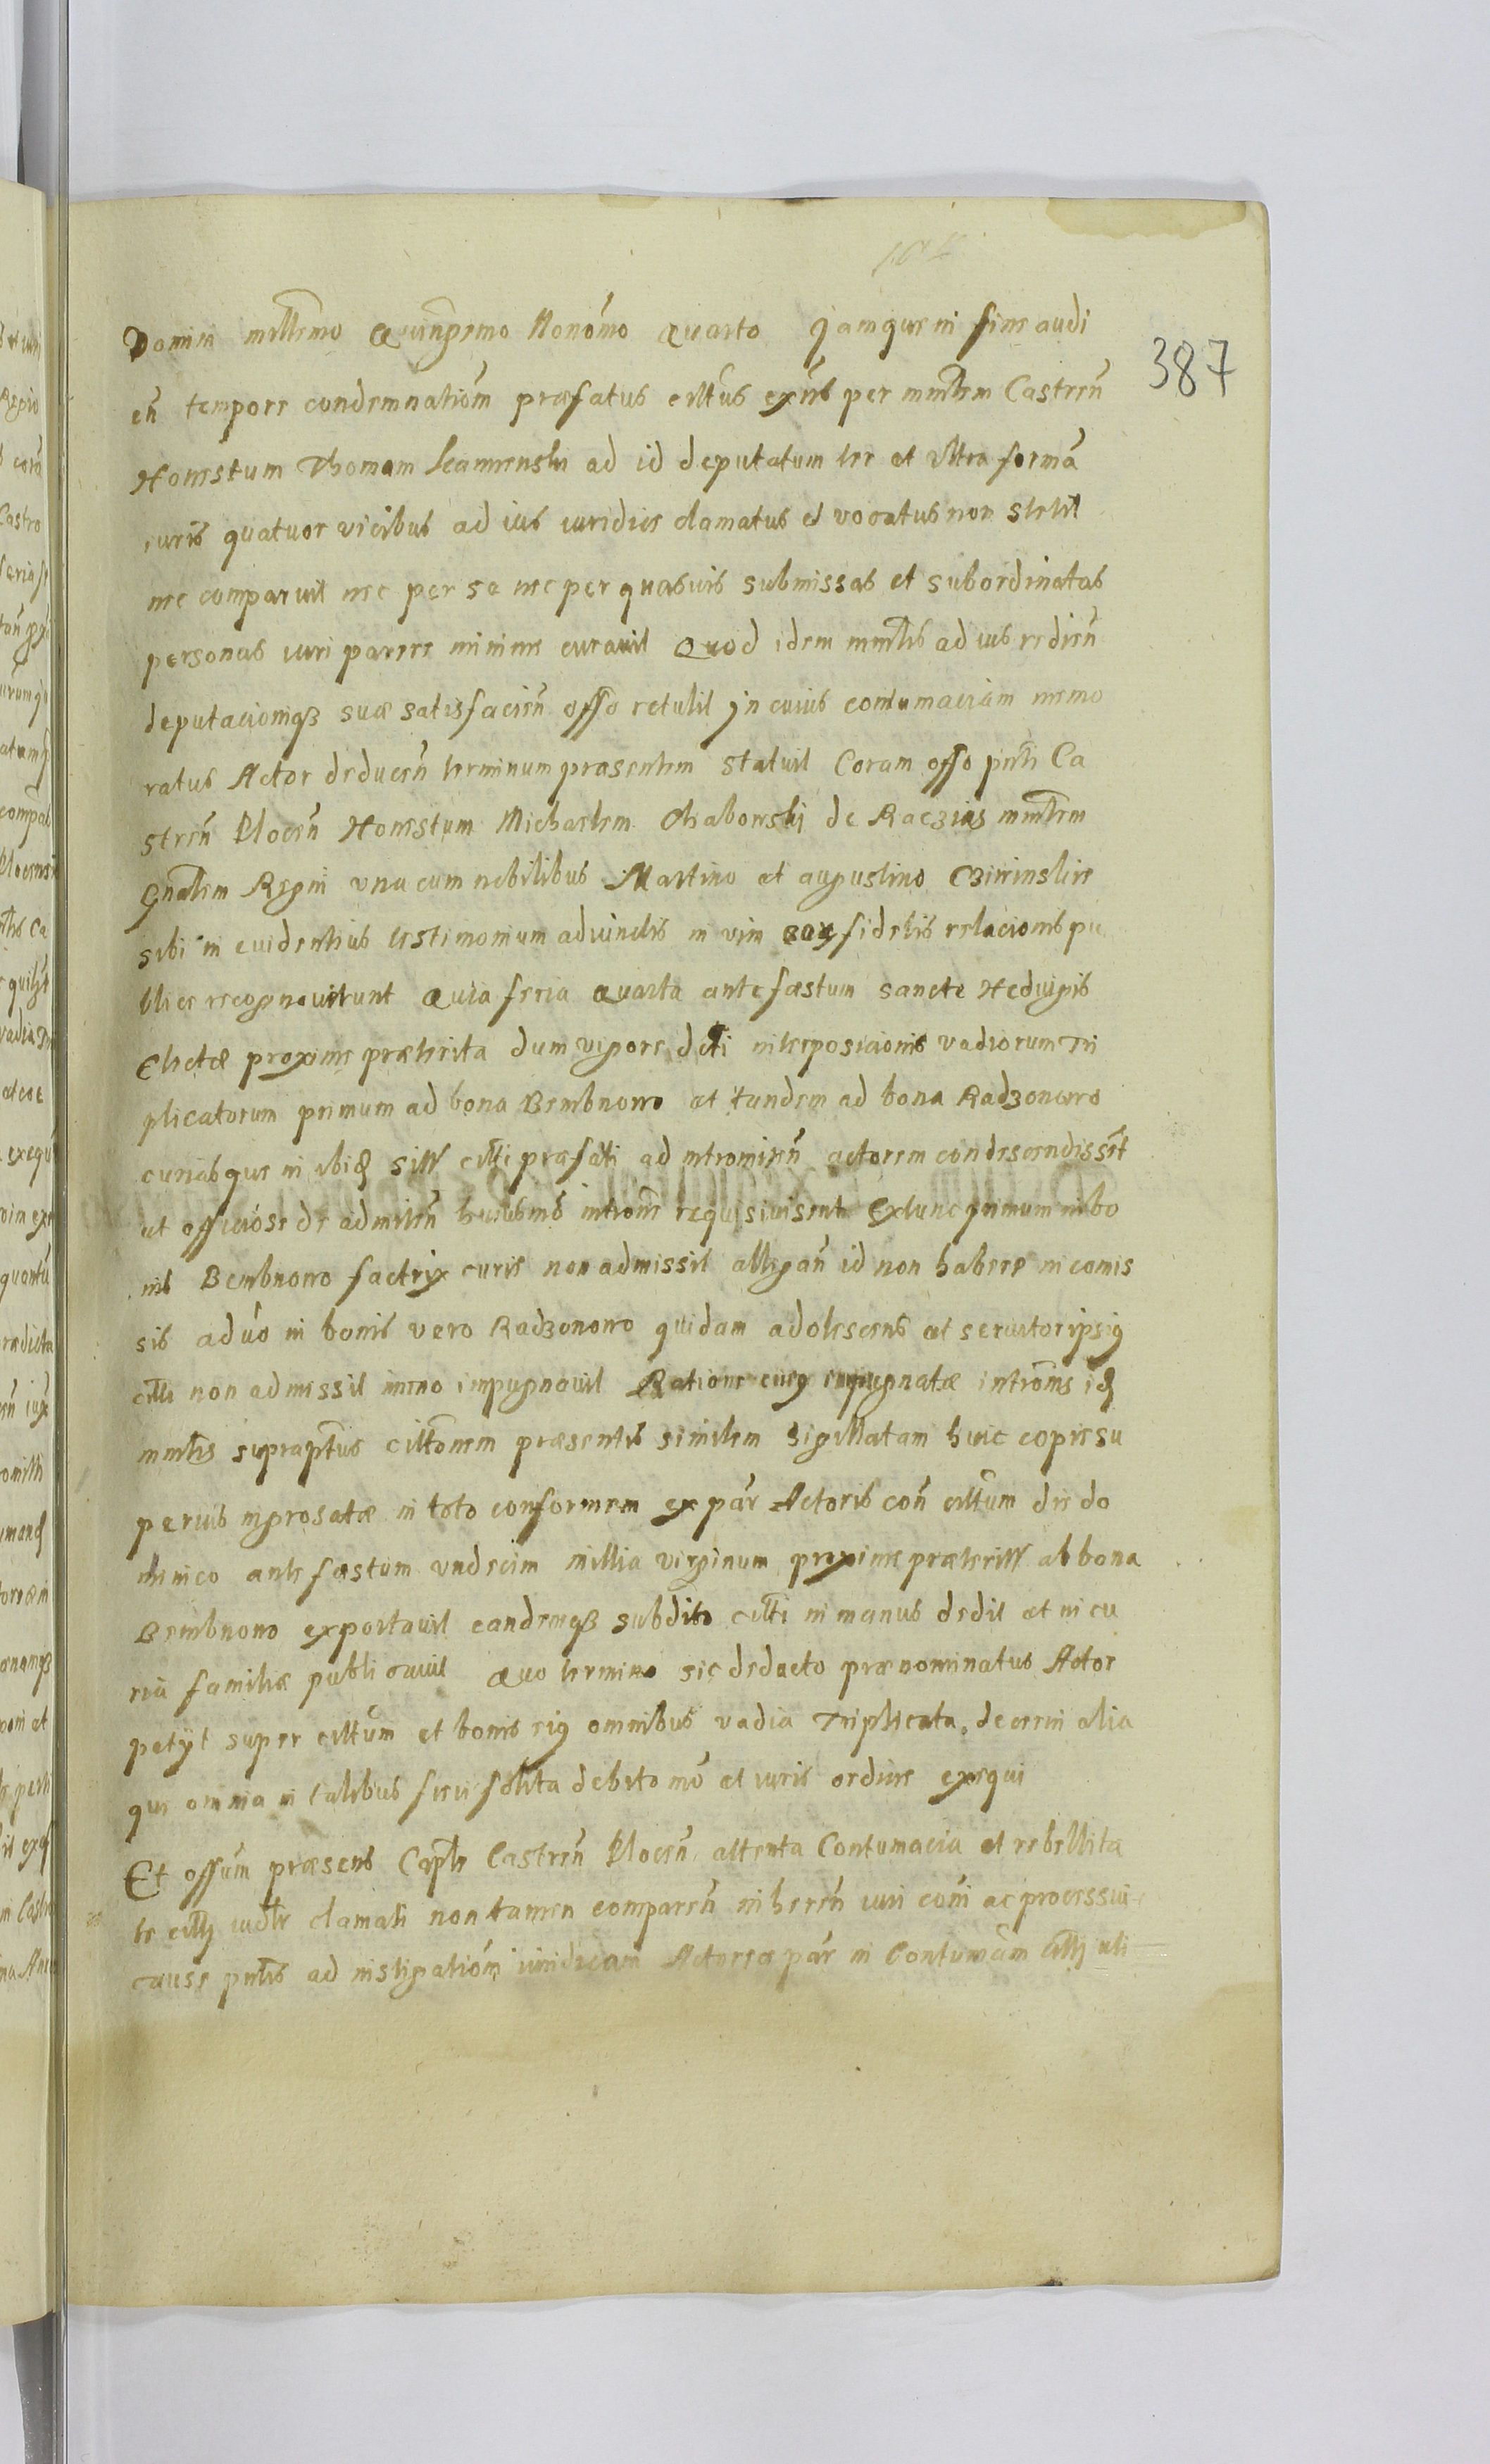 387
Domini millemo Quingemo Nonomo Quarto Jamque in fine audi
en tempore condemnationum praefatus cittus exns per mnlem Castren
Honestum Thomam Leaminski ad id deputatum ter et ultra forma
iuris quatuor vicibus ad ius iuridice clamatus et vocatus non stetit
nec comparuit nec per se nec per quasuis submissas et subordinatas
personas iuri parere minime curauit Quod idem mnlis ad ius redien
deputacioniqz suae satisfacien offo retulit Jn cuius contumaciam memo
ratus Actor deducen terminum praesentem statuit Coram offo pnti Ca
stren Plocen Honestum Michaelem Chabowski de Raczias mnlem
Gnalem Regni una cum nobilibus Martino et augustino
sibi in euidentius testimonium adiunctis in vim fidelis relacionis pu
blice recognouerunt Quia feria Quarta ante faestum sancte Heduigis
Electae proxime praeterita dum vigore dcti interposicionis vadiorum Tri
plicatorum primum ad bona Bembnowo et tandem ad bona Radzonowo
curiasque in ibidem citti praefati ad intromitten actorem condescendissent
et officiose de admitten huiusmoi introm requisiuisent Extunc primum in bo
nis Bembnowo factrix curie non admissit allegan id non habere in comis
sis aduo in bonis vero Radzonowo quidam adolescens et seruitor ipsius
citti non admissit imo impugnauit Ratione cuius impugnatae introms idem
mnlis supraptus cittonem praesentis similem sigillatam huic copie su
perius ingrosatae in toto conformem ex par Actoris con cittum die do
minico ante faestum undecim millia virginum proxime praeterit ab bona
Bembnowo exportauit eandemqz subdito citti in manus dedit et in cu
ria familiae publicauit Quo termino sic deducto praenominatus Actor
petyt super cittum et bonis eius omnibus vadia Triplicata decerni alia
que omnia in talibus fieri solita debito mo et iuris ordine exequi
Et offum praesens Caple Castren Plocen attenta Contumacia et rebellita
te citti iudlr clamati non tamen comparen inheren iuri coni ac processui
cause pntis ad instigationem iuridicam Actoreae par in Contumam citti uti